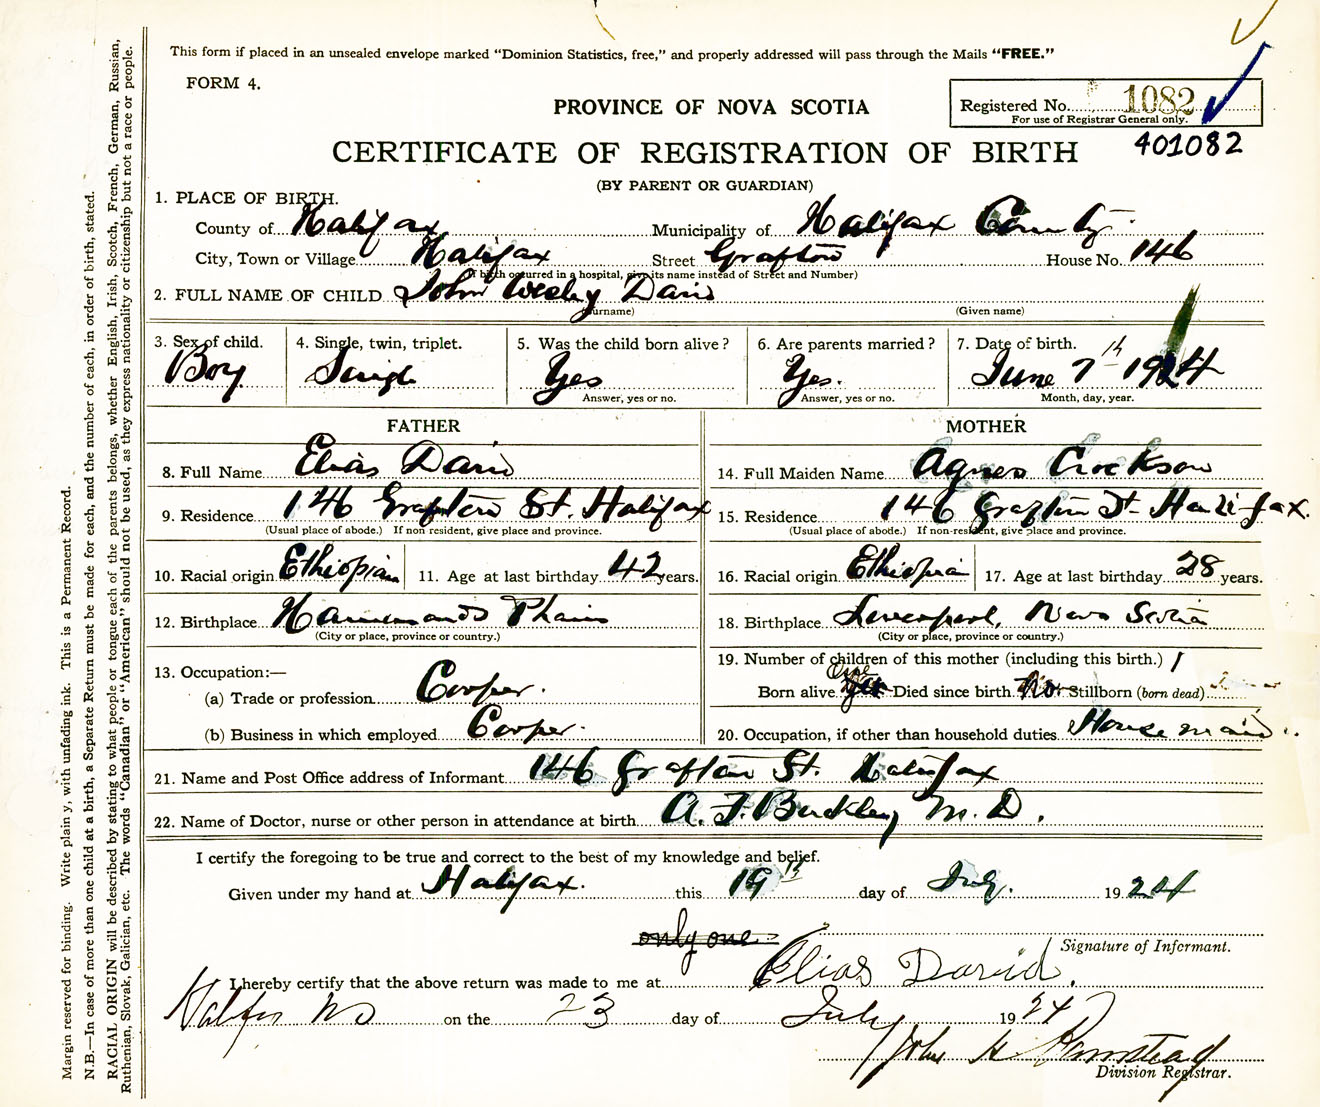 This form if placed in an unsealed envelope marked "Dominion Statistics, free," and properly addressed will pass through the Mails "FREE."
FORM 4.
PROVINCE OF NOVA SCOTIA
Registered No. 1082
For use of Registrar General only.
401082
CERTIFICATE OF REGISTRATION OF BIRTH
(BY PARENT OR GUARDIAN)
1. PLACE OF BIRTH.
County of Halifax Municipality of Halifax County
City, Town or Village Halifax Street Grafton House No. 146
(If birth occurred in a hospital, give its name instead of Street and Number)
2. FULL NAME OF CHILD John Wesley David
(Surname) (Given name)
3. Sex of child. Boy
4. Single, twin, triplet. Single
5. Was the child born alive? Yes
Answer, yes or no.
6. Are parents married? Yes.
Answer, yes or no.
7. Date of birth. June 7th 1924
Month, day, year.
FATHER
8. Full Name Elias David
9. Residence 146 Grafton St. Halifax
(Usual place of abode.) If non resident, give place and province.
10. Racial origin Ethiopian 11. Age at last birthday 42 years.
12. Birthplace Hammonds Plains
(City or place, province or country.)
13. Occupation:—
(a) Trade or profession Cooper.
(b) Business in which employed Cooper.
MOTHER
14. Full Maiden Name Agnes
15. Residence 146 Grafton St Halifax.
(Usual place of abode.) If non-resident, give place and province.
16. Racial origin Ethiopian 17. Age at last birthday 28 years.
18. Birthplace Liverpool, Nova Scotia
(City or place, province or country.)
19. Number of children of this mother (including this birth.) 1
Born alive One Yes Died since birth No. Stillborn (born dead)
20. Occupation, if other than household duties House maid
21. Name and Post Office address of Informant 146 Grafton St. Halifax
22. Name of Doctor, nurse or other person in attendance at birth A. F. Buckley M. D.
I certify the foregoing to be true and correct to the best of my knowledge and belief.
Given under my hand at Halifax. this 19th day of July. 1924
only one
Signature of Informant.
Elias David.
I hereby certify that the above return was made to me at
Halifax NS on the 23 day of July 1924
John H
Division Registrar.
Margin reserved for binding. Write plainly, with unfading ink. This is a Permanent Record.
N.B.—In case of more than one child at a birth, a Separate Return must be made for each, and the number of each, in order of birth, stated.
RACIAL ORIGIN will be described by stating to what people or tongue each of the parents belongs, whether English, Irish, Scotch, French, German, Russian,
Ruthenian, Slovak, Galician, etc. The words "Canadian" or "American" should not be used, as they express nationality or citizenship but not a race or people.